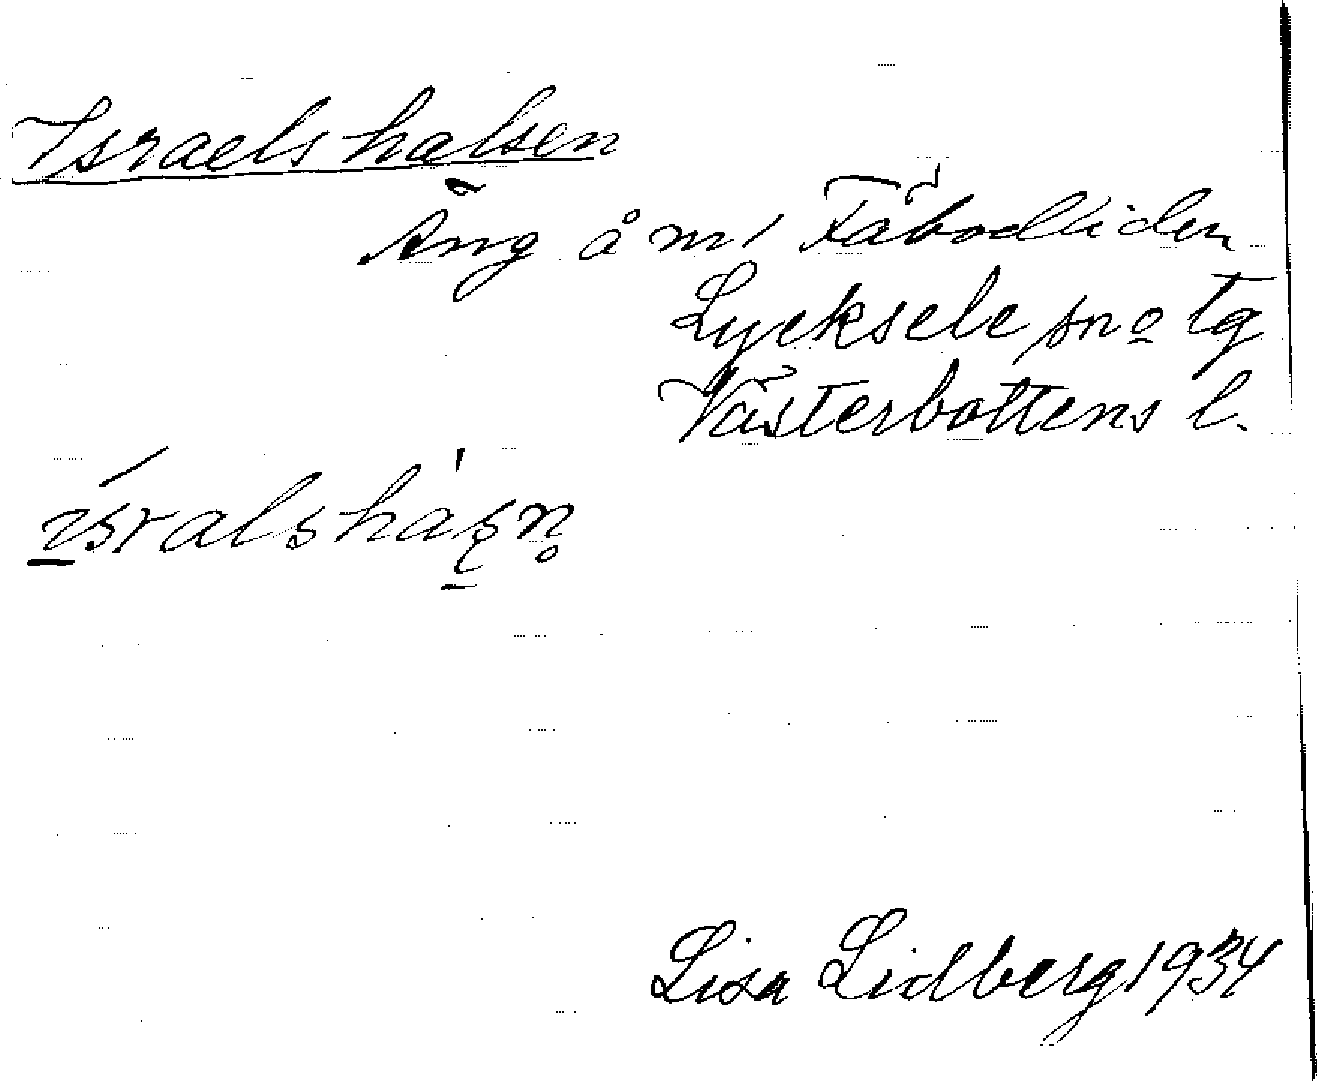 Israelshalsen
Äng å m/ Fäbodliden
Lycksele sn o tg
Västerbottens l.
Lisa Lidberg 1934